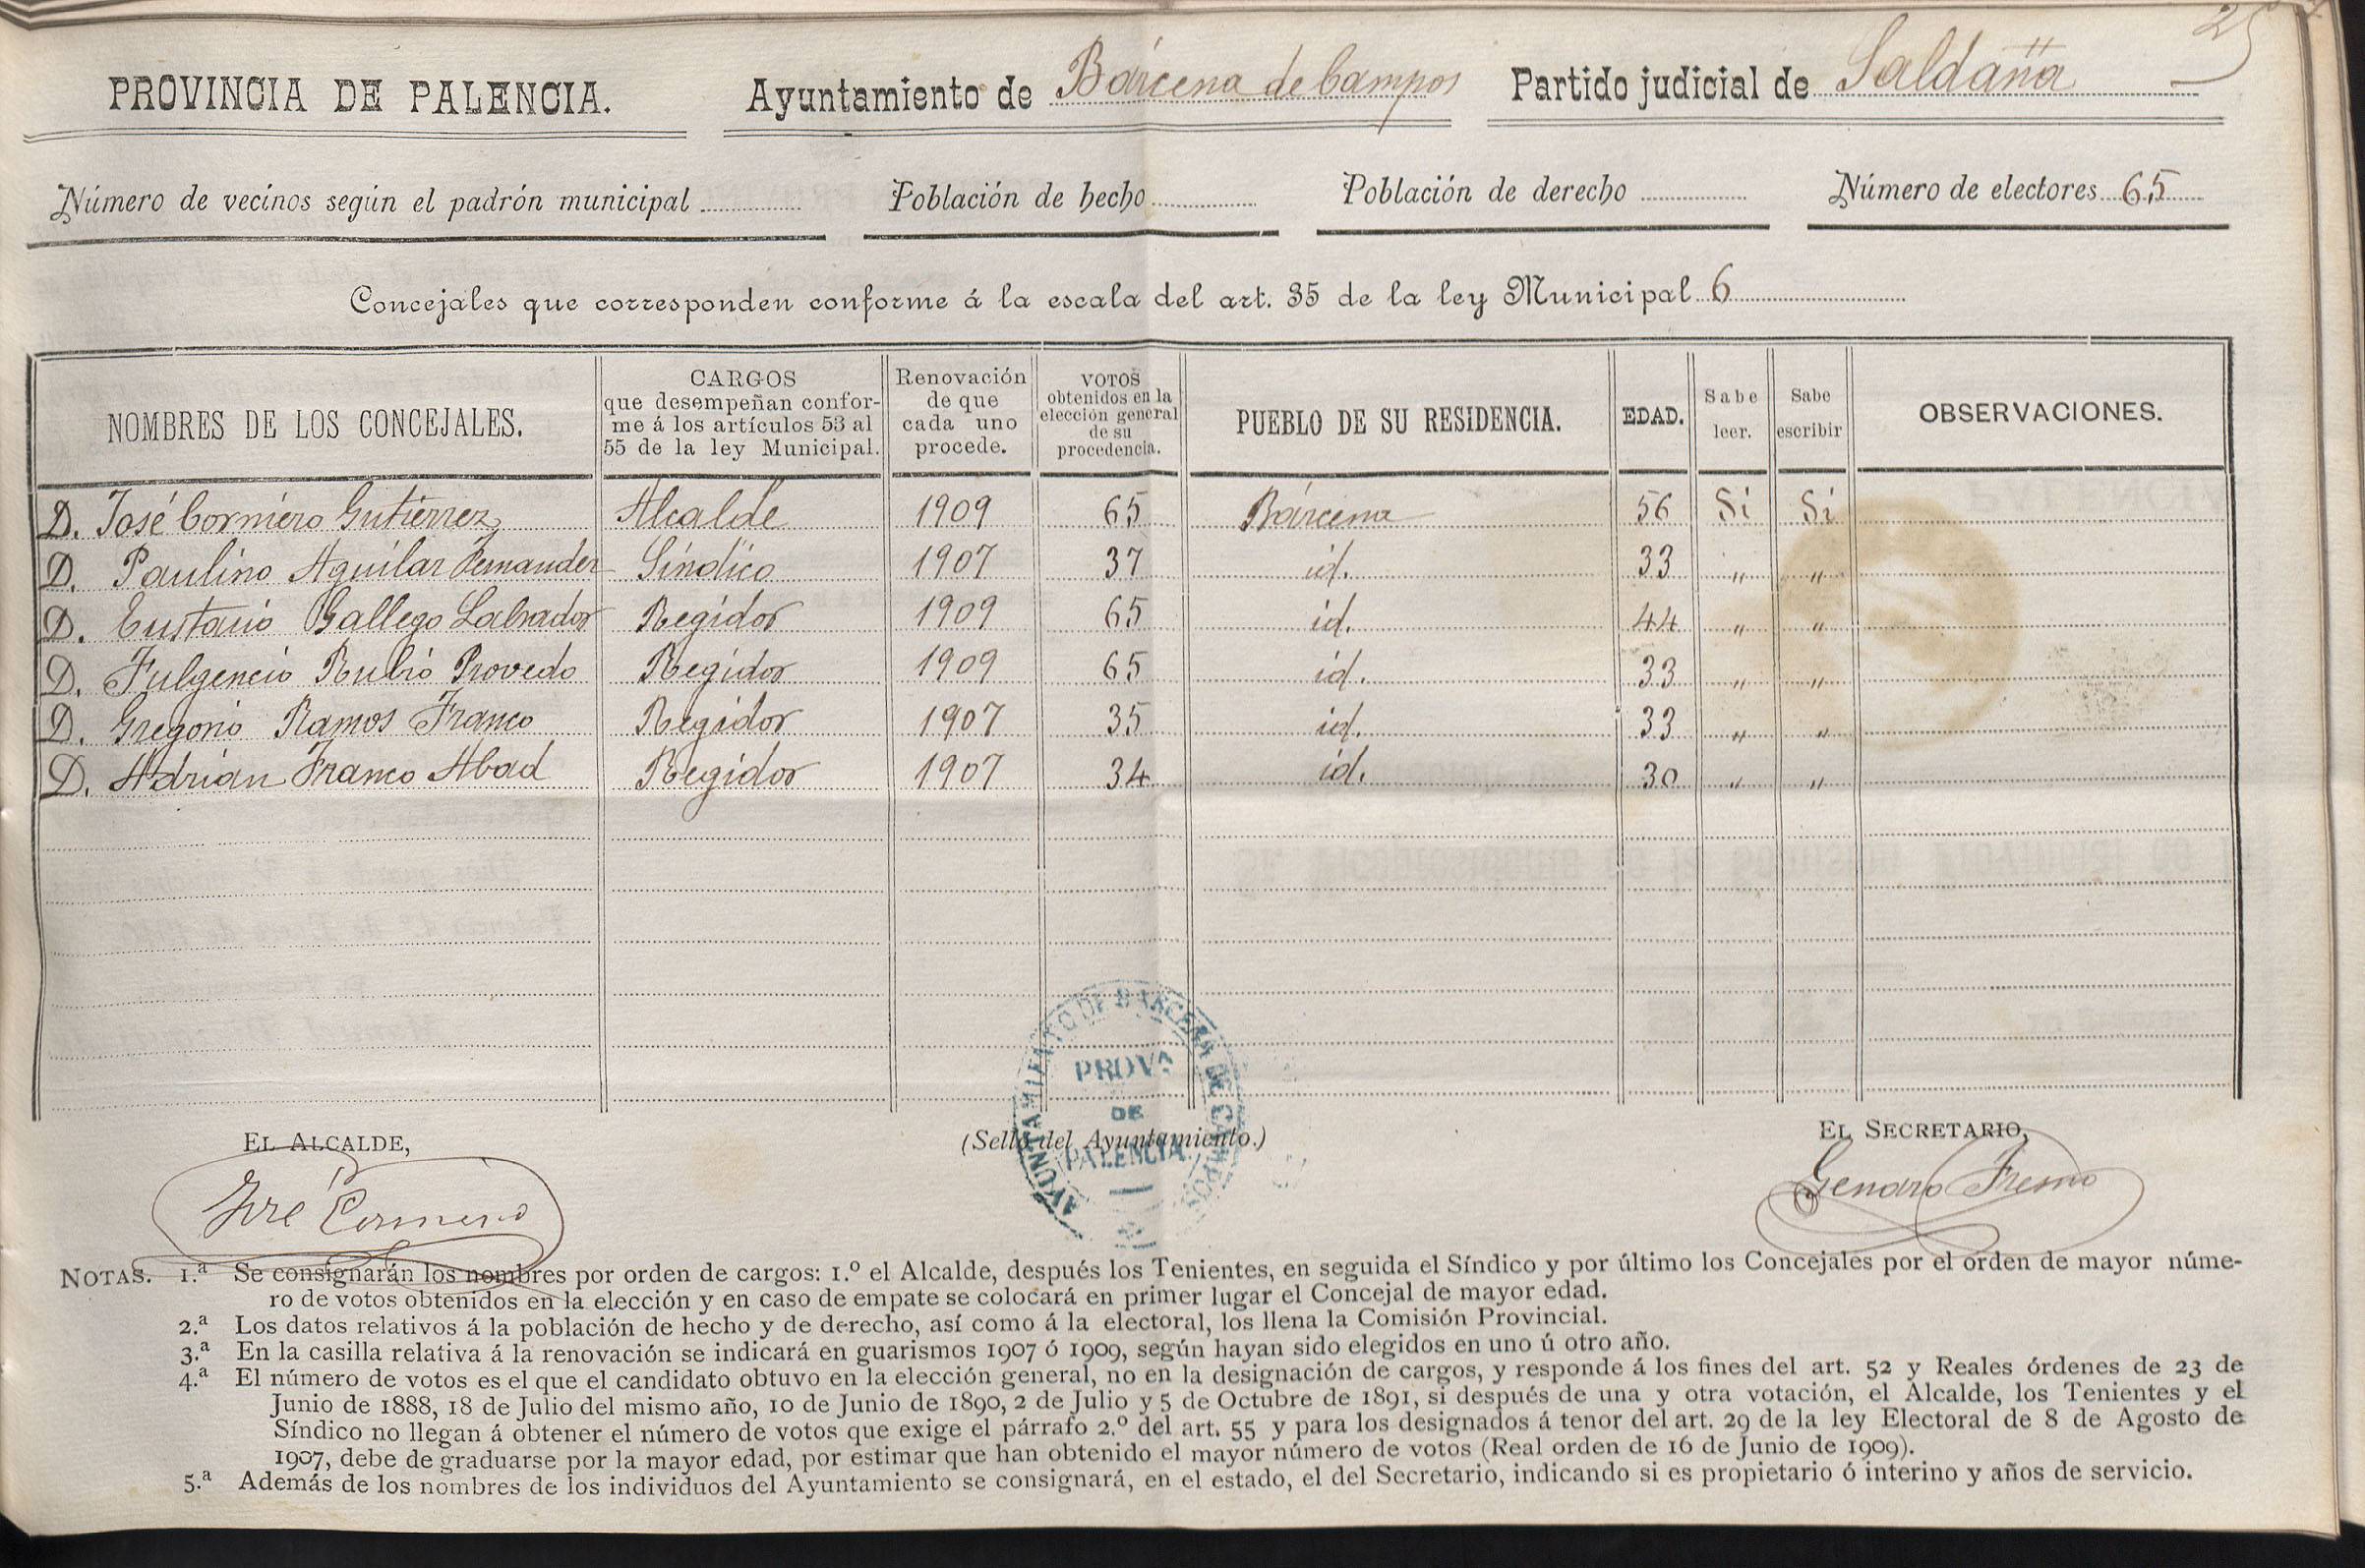 25
PROVINCIA DE PALENCIA. Ayuntamiento de Bárcena de Campos Partido judicial de Saldaña
Número de vecinos según el padrón municipal Población de hecho Población de derecho Número de electores 65
Concejales que corresponden conforme á la escala del art. 35 de la ley Municipal 6
NOMBRES DE LOS CONCEJALES. CARGOS que desempeñan conforme á los artículos 53 al 55 de la ley Municipal. Renovación de que cada uno procede. VOTOS obtenidos en la elección general de su procedencia. PUEBLO DE SU RESIDENCIA. EDAD. Sabe leer. Sabe escribir OBSERVACIONES.
D. José Cormiero Gutierrez Alcalde 1909 65 Bárcena 56 Si Si
D. Paulino Aguilar Fernandez Síndico 1907 37 id. 33 " "
D. Eustacio Gallego Labrador Regidor 1909 65 id. 44 " "
D. Fulgencio Rubio Provedo Regidor 1909 65 id. 33 " "
D. Gregorio Ramos Franco Regidor 1907 35 id. 33 " "
D. Adrian Franco Abad Regidor 1907 34 id. 30 " "
AYUNTAMIENTO DE BARCENA DE CAMPOS
PROVA
DE
PALENCIA
EL ALCALDE, (Sello del Ayuntamiento.) EL SECRETARIO,
José Genaro
NOTAS. 1.ª Se consignarán los nombres por orden de cargos: 1.º el Alcalde, después los Tenientes, en seguida el Síndico y por último los Concejales por el orden de mayor núme-
ro de votos obtenidos en la elección y en caso de empate se colocará en primer lugar el Concejal de mayor edad.
2.ª Los datos relativos á la población de hecho y de derecho, así como á la electoral, los llena la Comisión Provincial.
3.ª En la casilla relativa á la renovación se indicará en guarismos 1907 ó 1909, según hayan sido elegidos en uno ú otro año.
4.ª El número de votos es el que el candidato obtuvo en la elección general, no en la designación de cargos, y responde á los fines del art. 52 y Reales órdenes de 23 de
Junio de 1888, 18 de Julio del mismo año, 10 de Junio de 1890, 2 de Julio y 5 de Octubre de 1891, si después de una y otra votación, el Alcalde, los Tenientes y el
Síndico no llegan á obtener el número de votos que exige el párrafo 2.º del art. 55 y para los designados á tenor del art. 29 de la ley Electoral de 8 de Agosto de
1907, debe de graduarse por la mayor edad, por estimar que han obtenido el mayor número de votos (Real orden de 16 de Junio de 1909).
5.ª Además de los nombres de los individuos del Ayuntamiento se consignará, en el estado, el del Secretario, indicando si es propietario ó interino y años de servicio.